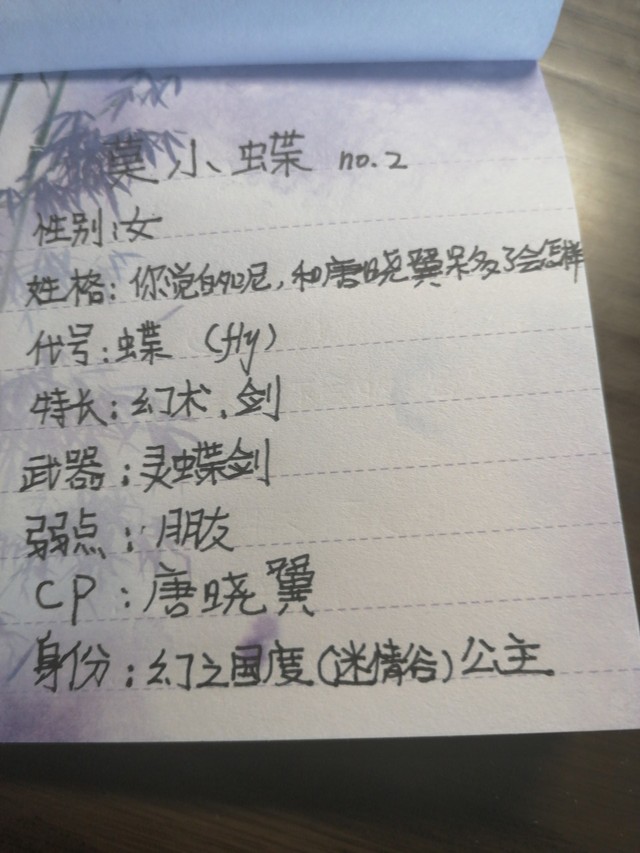 莫小蝶 no.2
性别:女
姓格:你觉的呢,和唐晓翼呆多了会怎样
代号:蝶 (fly)
特长:幻术、剑
武器:灵蝶剑
弱点:朋友
CP:唐晓翼
身份:幻之国度(迷情谷)公主